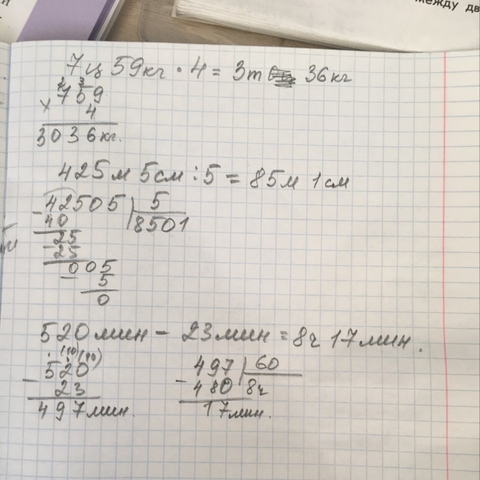 между дв
7ц 59кг · 4 = 3т 36кг
759
× 4
3036кг.
425м 5см : 5 = 85м 1см
42505 | 5
- 40 8501
25
- 25
005
- 5
0
520мин - 23мин = 8ч 17мин.
520
- 23
497мин.
497 | 60
- 480 8ч
17мин.